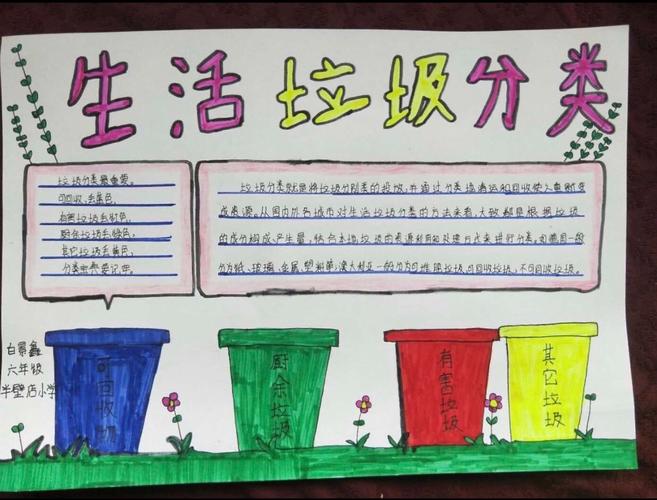 生活垃圾分类
垃圾分类最重要,
可回收,丢蓝色.
有害垃圾丢红色,
厨余垃圾丢绿色,
其它垃圾丢黄色,
分类要记牢.
垃圾分类就是将垃圾分别类的投放,并通过分类清运和回收使之重新变
成资源,从国内外各城市对生活垃圾分类的方法来看,大致都是根据垃圾
的成分构成、产生量,结合本地垃圾的资源利用和处理方式来进行分类。如德国一般
分为纸、玻璃、金属、塑料等;澳大利亚一般分为可堆肥垃圾,可回收垃圾,不可回收垃圾。
白景鑫
六年级
半壁店小学
可回收物
厨余垃圾
有害垃圾
其它垃圾